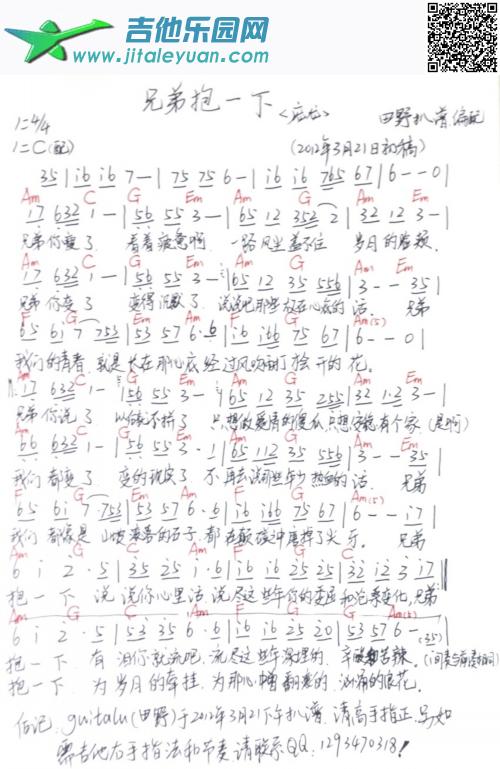 吉他乐园网
www.jitaleyuan.com
兄弟抱一下
<庞龙>
田野扒谱编配
1=4/4
1=C(配)
(2012年3月21日初稿)
35 | i6 i6 7 — | 75 75 6 — | i6 i6 765 67 | 6 - - 0 |
Am C G Em Am G Em
17 632 1 - | 56 55 3 - | 65 12 352 2 | 32 12 3 - |
兄弟你瘦了 看着疲惫啊 一路风尘盖不住 岁月的脸颊
Am C G Em Am G Am Em
17 632 1 — | 56 55 3 — | 65 12 35 556 | 3 - - 35 |
兄弟你变了 变得沉默了 说说吧那些放在心底的话 兄弟
F G Em Am F G Am(5)
65 6i 7 753 | 53 57 6·6 | i6 i66 75 67 | 6 - - 0 |
我们的青春 就是长在那心底 经过风吹雨打才绽开的花
Am C G Em Am G Em
17 632 1 - | 56 55 3 — | 65 12 35 255 | 32 1·2 3 - |
兄弟你说了 以后就不拼了 只想做爱情的傻瓜 只想安稳有个家 (是啊)
Am C G Em Am G Em
66 632 1 — | 56 55 3·1 | 65 112 35 556 | 3 - - 35 |
我们都变了 变的现实了 不再去说那些年少热血的话 兄弟
F G Em Am F G Am(5)
65 6i 7 753 | 53 57 6·6 | i6 i66 75 67 | 6 - - i7 |
我们都像是 山坡滚落的石子 都在颠簸中磨掉了尖牙 兄弟
Am G C Am F G Em
6 i 2·5 | 35 25 i·6 | i6 i6 25 25 | 32 i2 3 i7 |
抱一下 说说你心里话 说尽这些年你的委屈和沧桑变化 兄弟
Am G C Am F G Am(5)
6 i 2·5 | 53 35 6·6 | i6 i6 25 20 | 53 57 6 — (35) |
抱一下 有泪你就流吧 流尽这些年深埋的 辛酸和苦辣 (间奏与前奏相同)
抱一下 为岁月的牵挂 为那心中翻滚的 汹涌的浪花
后记：guitalu(田野)于2012年3月21下午扒谱 请高手指正 另如
需吉他右手指法和节奏 请联系QQ：1293470318!